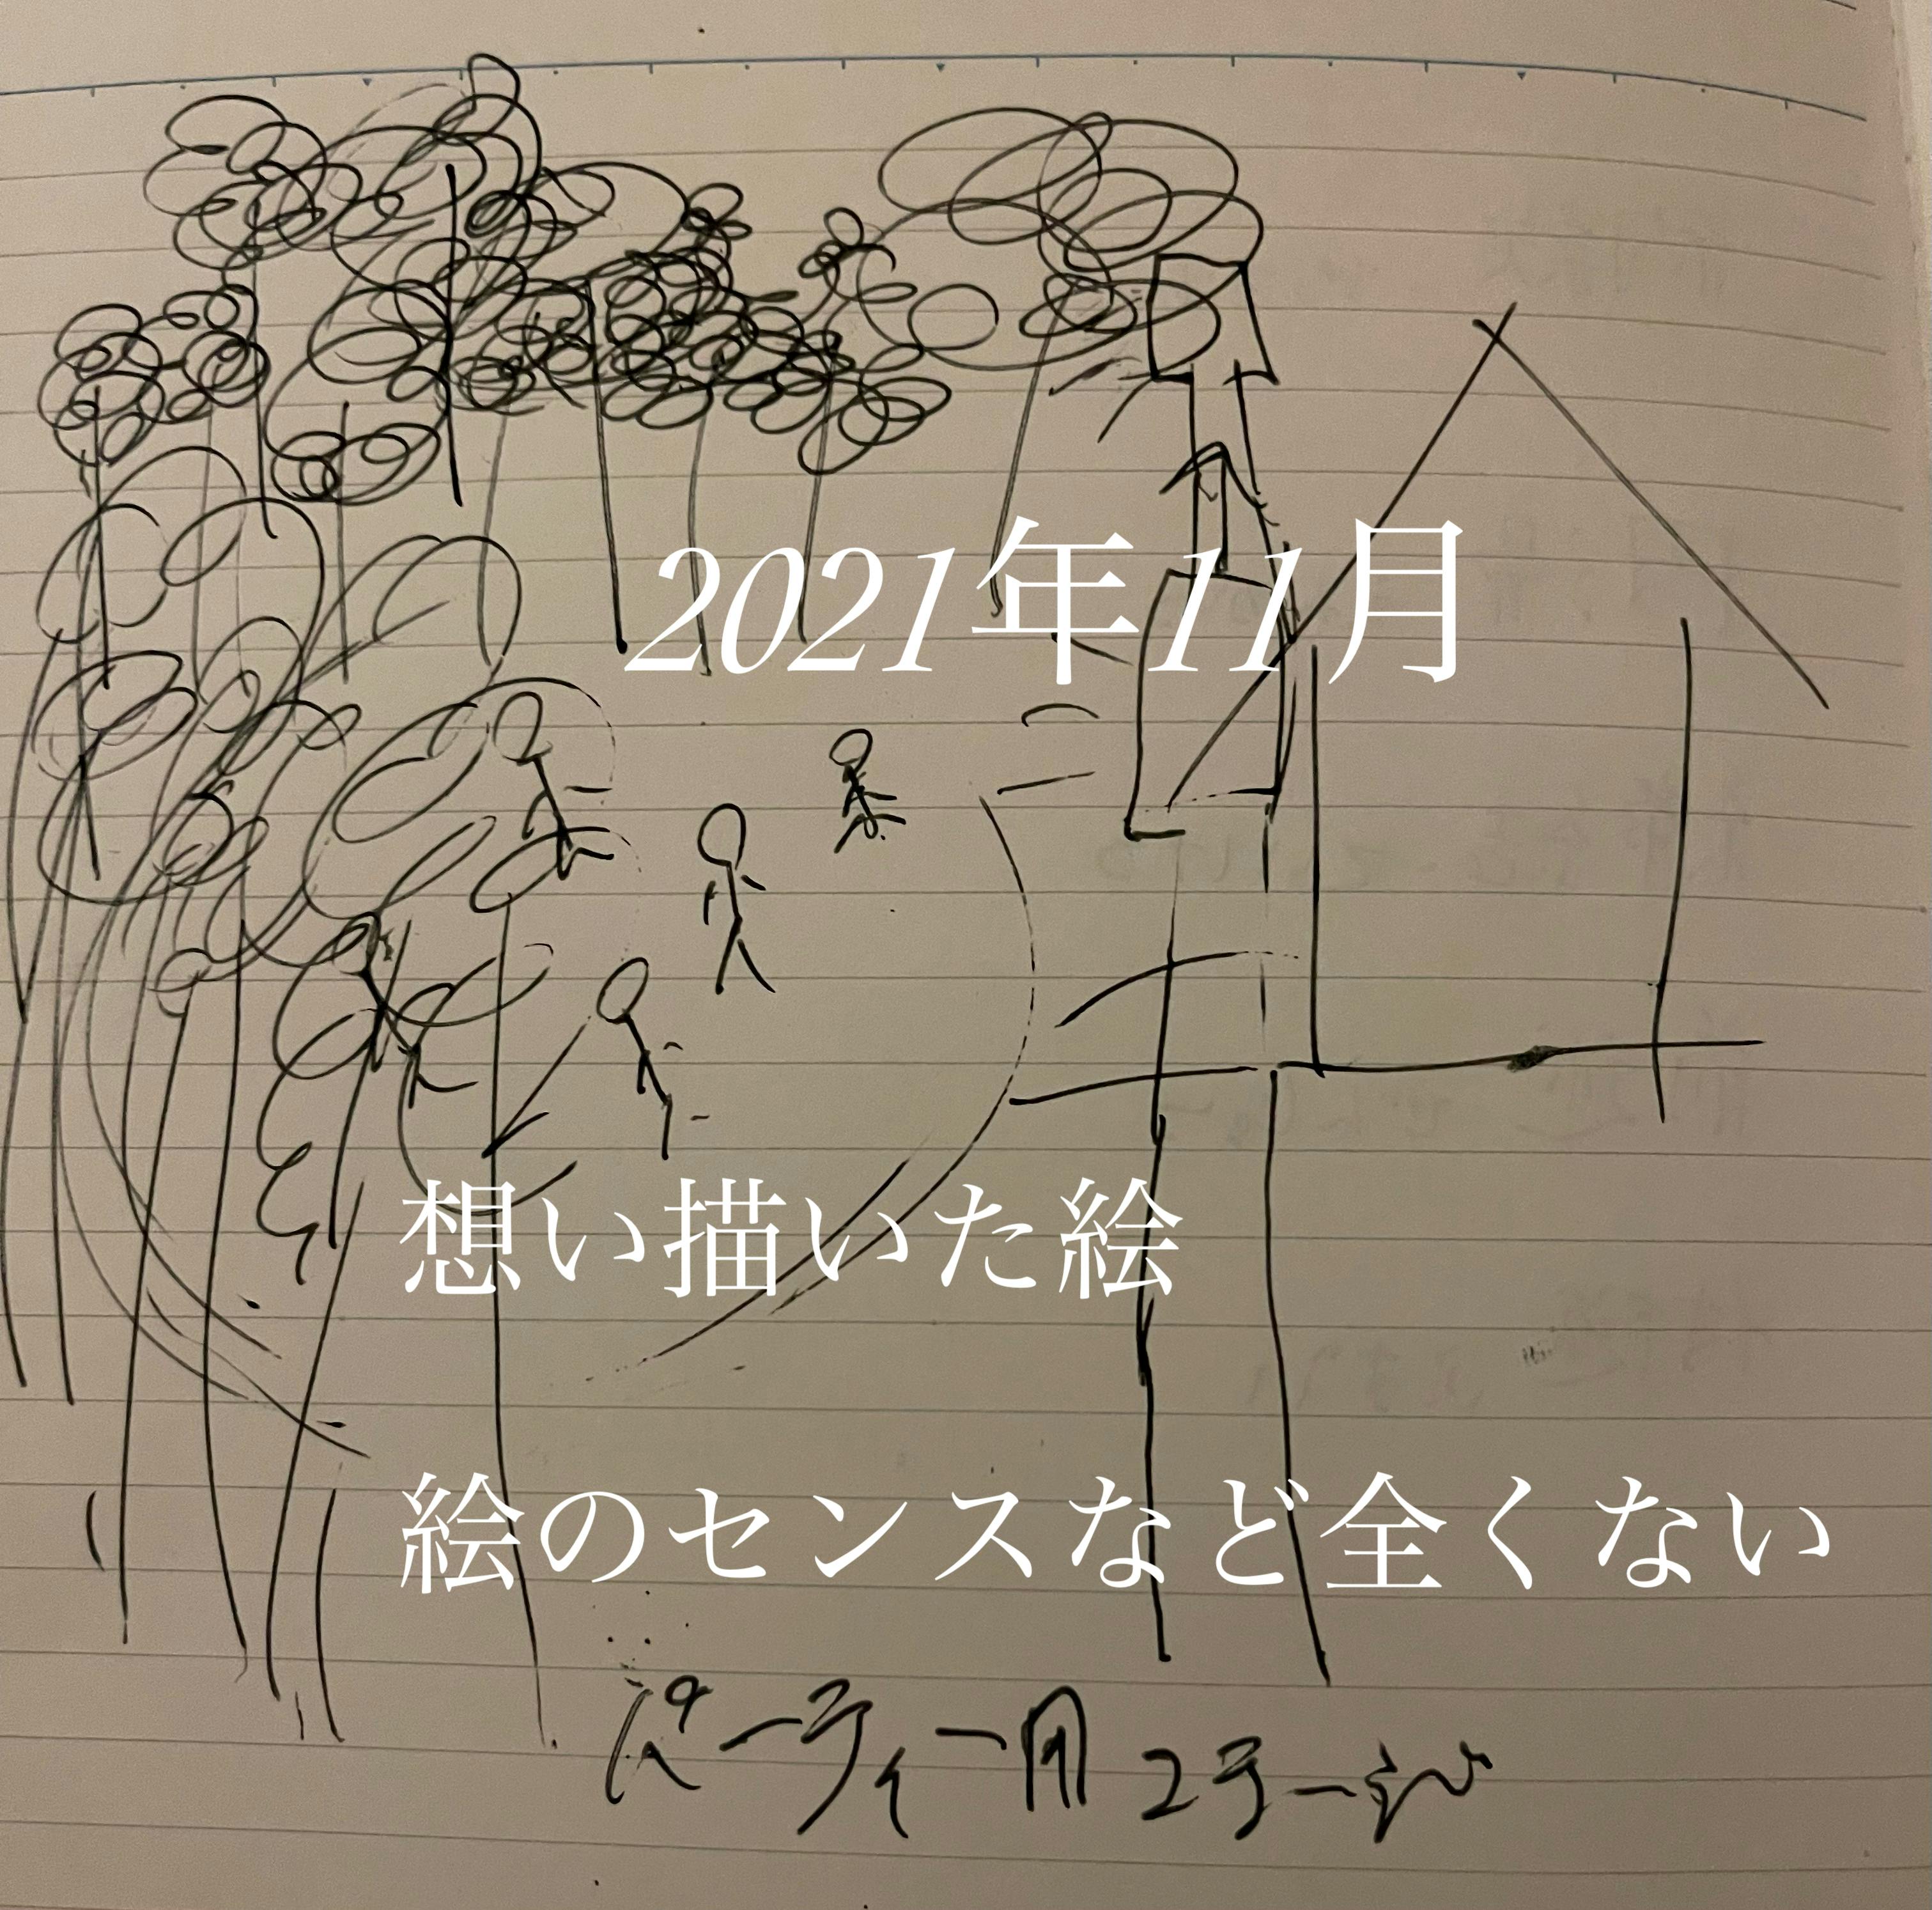 2021年11月
想い描いた絵
絵のセンスなど全くない
パーティー用ステージ